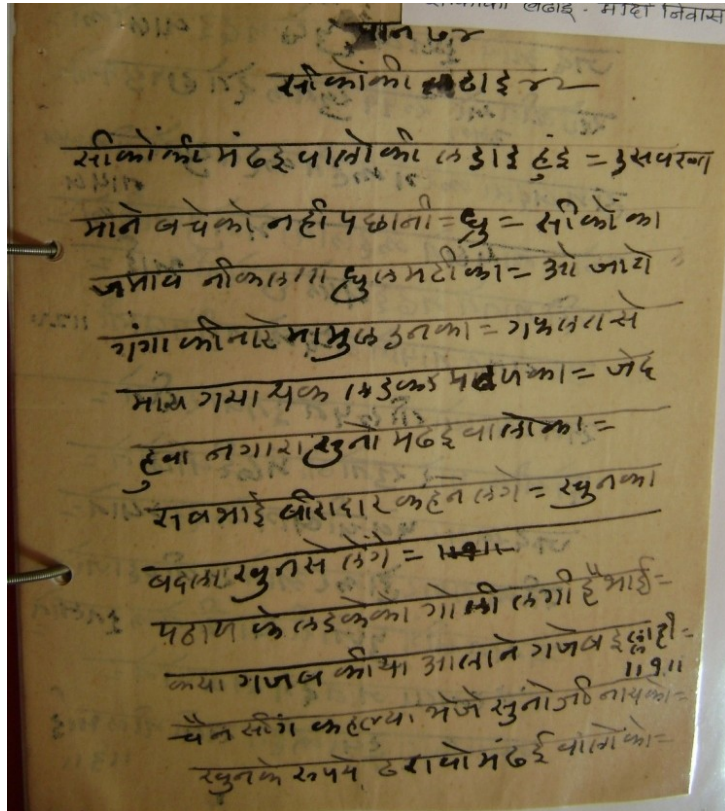 लढाइ - मोदी निवास
पान ७४
सीकोंकी लढाइ
सीकोंकी मंढइ वालोकी लडाइ हुंइ = उसवख्त
माने बचेको नही पछानी = ध्रु = सीकों का
जमाव नीकलगा धुल मटीका = ओ जागे
गंगा कीनारे मामुल उनका = गफलत से
मारा गया यक लडका = जेद
हुवा नगारा सुनो मंढइ वालोका =
सब भाई बीरादार कहने लगे = खुनका
बदला खुनसे लेंगे = ॥१॥
पठाण के लडकेको गोली लगी है भाई =
क्या गजब कीया आलाने गजब इलाही =
॥१॥
चैन सींग कहल्या भेजे सुनोजी नायको =
खुनके रुपये ठरावो मंढई वालोको =